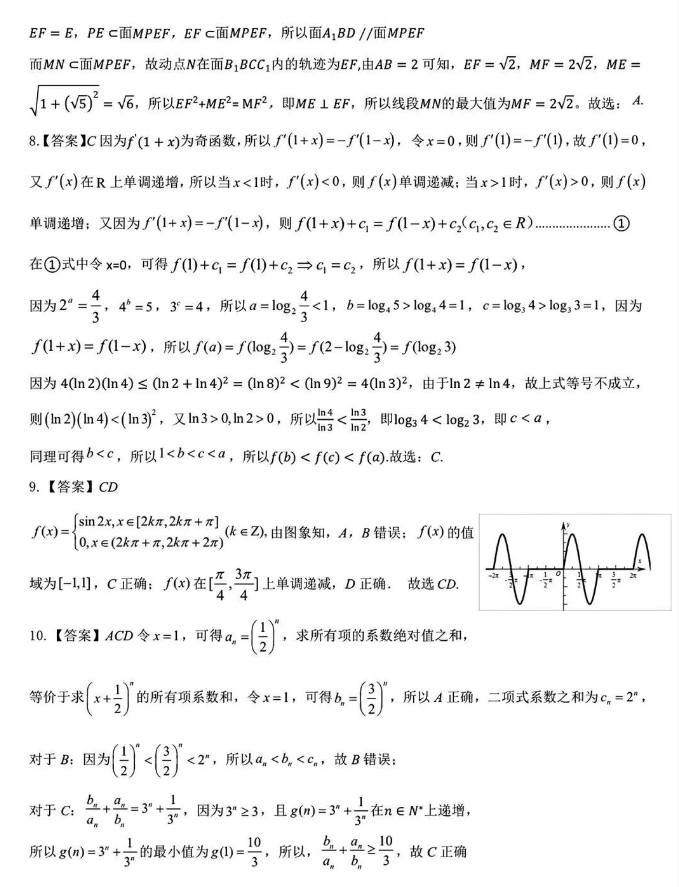 EF = E，PE ⊂面MPEF，EF ⊂面MPEF，所以面A₁BD //面MPEF
而MN ⊂面MPEF，故动点N在面B₁BCC₁内的轨迹为EF,由AB = 2 可知，EF = √2，MF = 2√2，ME =
√(1 + (√5)²) = √6，所以EF²+ME²= MF²，即ME ⊥ EF，所以线段MN的最大值为MF = 2√2。故选：A.
8.【答案】C 因为f'(1 + x)为奇函数,所以 f'(1+x)=−f'(1−x)，令x=0,则 f'(1)=−f'(1),故 f'(1)=0，
又 f'(x)在 R 上单调递增，所以当x<1时，f'(x)<0，则 f(x)单调递减；当x>1时，f'(x)>0，则 f(x)
单调递增；又因为 f'(1+x)=−f'(1−x)，则 f(1+x)+c₁ = f(1−x)+c₂(c₁,c₂ ∈ R)......................①
在①式中令 x=0，可得 f(1)+c₁ = f(1)+c₂ ⇒ c₁ = c₂，所以 f(1+x)= f(1−x)，
因为 2ᵃ = 4/3，4ᵇ = 5，3ᶜ = 4，所以 a = log₂ 4/3 <1，b = log₄ 5 > log₄ 4 = 1，c = log₃ 4 > log₃ 3 = 1，因为
f(1+x)= f(1−x)，所以 f(a)= f(log₂ 4/3)= f(2−log₂ 4/3)= f(log₂ 3)
因为 4(ln 2)(ln 4) ≤ (ln 2 + ln 4)² = (ln 8)² < (ln 9)² = 4(ln 3)²，由于ln 2 ≠ ln 4，故上式等号不成立，
则(ln 2)(ln 4)<(ln 3)²，又 ln 3>0,ln 2>0，所以 ln 4/ln 3 < ln 3/ln 2，即log₃ 4 < log₂ 3，即 c < a，
同理可得b<c，所以1<b<c<a，所以f(b) < f(c) < f(a).故选：C.
9.【答案】CD
f(x)={sin 2x, x∈[2kπ,2kπ+π] 0, x∈(2kπ+π,2kπ+2π) (k∈Z),由图象知，A，B 错误；f(x) 的值
域为[−1,1]，C 正确；f(x)在[π/4, 3π/4]上单调递减，D 正确． 故选 CD.
10.【答案】ACD 令 x=1，可得aₙ = (1/2)ⁿ，求所有项的系数绝对值之和，
等价于求(x+1/2)ⁿ的所有项系数和，令x=1，可得bₙ = (3/2)ⁿ，所以 A 正确，二项式系数之和为cₙ = 2ⁿ，
对于 B：因为(1/2)ⁿ < (3/2)ⁿ < 2ⁿ，所以aₙ < bₙ < cₙ，故 B 错误；
对于 C：bₙ/aₙ + aₙ/bₙ = 3ⁿ + 1/3ⁿ，因为3ⁿ ≥ 3，且 g(n) = 3ⁿ + 1/3ⁿ 在n ∈ N*上递增，
所以 g(n) = 3ⁿ + 1/3ⁿ 的最小值为 g(1) = 10/3，所以，bₙ/aₙ + aₙ/bₙ ≥ 10/3，故 C 正确